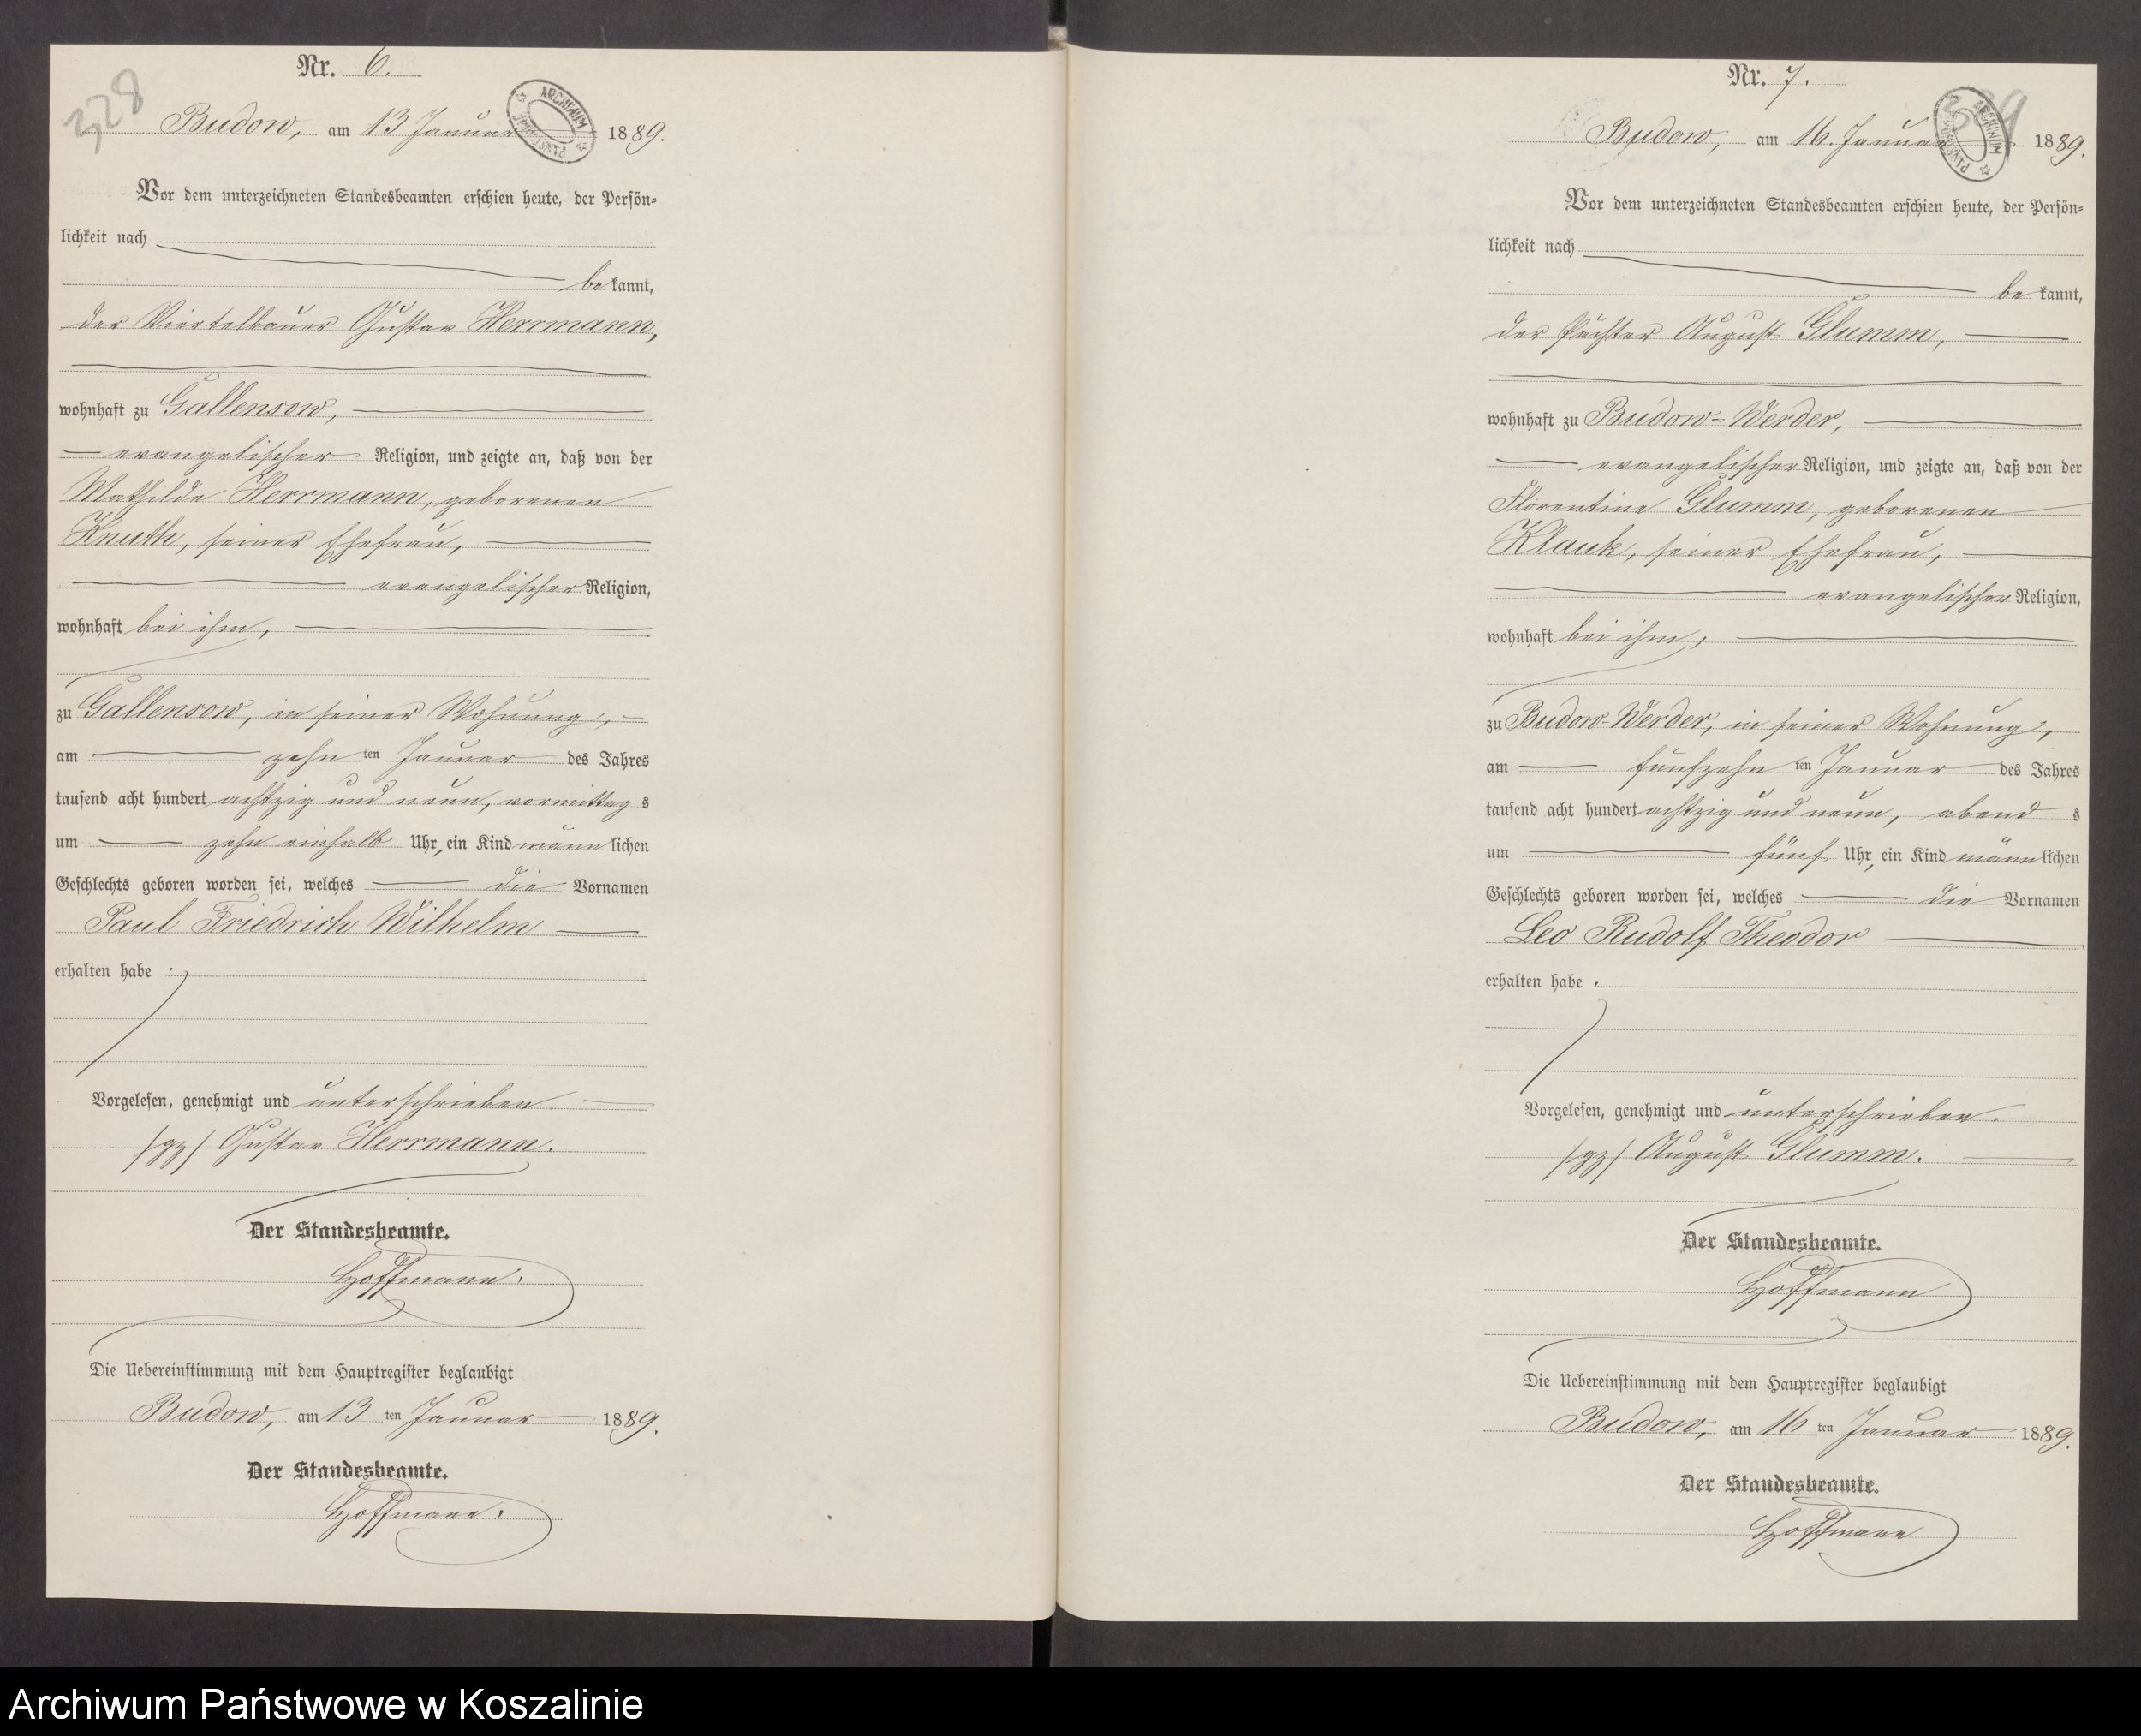 Nr. 6.
328
Budow, am 13 Januar 1889.
ARCHIWUM
Vor dem unterzeichneten Standesbeamten erschien heute, der Persön-
lichkeit nach
bekannt,
der Viertelbauer Gustav Herrmann,
wohnhaft zu Gallensow,
evangelischer Religion, und zeigte an, daß von der
Mathilde Herrmann, geborenen
Knuth, seiner Ehefrau,
evangelischer Religion,
wohnhaft bei ihm,
zu Gallensow, in seiner Wohnung,
am zehn ten Januar des Jahres
tausend acht hundert achtzig und neun, vormittags
um zehn einhalb Uhr, ein Kind männlichen
Geschlechts geboren worden sei, welches die Vornamen
Paul Friedrich Wilhelm
erhalten habe.
Vorgelesen, genehmigt und unterschrieben.
/gz/ Gustav Herrmann.
Der Standesbeamte.
Hoffmann.
Die Uebereinstimmung mit dem Hauptregister beglaubigt
Budow, am 13 ten Januar 1889.
Der Standesbeamte.
Hoffmann.
Nr. 7.
Budow, am 16. Januar 1889.
ARCHIWUM
Vor dem unterzeichneten Standesbeamten erschien heute, der Persön-
lichkeit nach
bekannt,
der Pächter August Glumm,
wohnhaft zu Budow-Werder,
evangelischer Religion, und zeigte an, daß von der
Florentine Glumm, geborenen
Klauk, seiner Ehefrau,
evangelischer Religion,
wohnhaft bei ihm,
zu Budow-Werder, in seiner Wohnung,
am fünfzehn ten Januar des Jahres
tausend acht hundert achtzig und neun, abends
um fünf Uhr, ein Kind männlichen
Geschlechts geboren worden sei, welches die Vornamen
Leo Rudolf Theodor
erhalten habe.
Vorgelesen, genehmigt und unterschrieben.
/gz/ August Glumm.
Der Standesbeamte.
Hoffmann
Die Uebereinstimmung mit dem Hauptregister beglaubigt
Budow, am 16 ten Januar 1889.
Der Standesbeamte.
Hoffmann
Archiwum Państwowe w Koszalinie